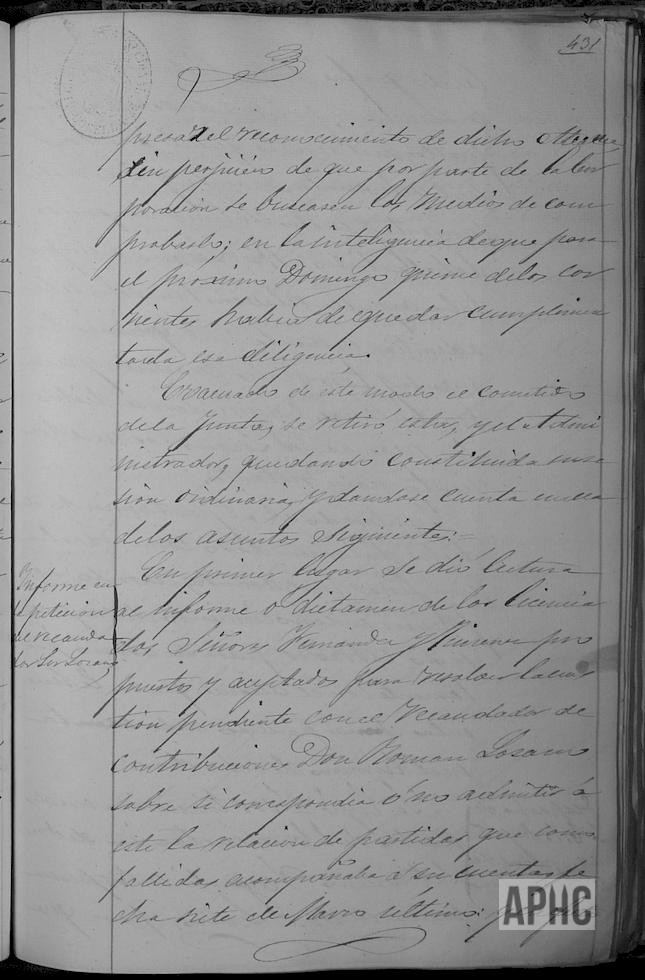 431
presa del reconocimiento de dicho
sin perjuicio de que por parte de la Cor
poracion se buscasen los medios de com
probarlo; en la inteligencia de que para
el próximo Domingo quince de los cor
rientes habia de quedar cumplimen
tada esa diligencia.
Evacuado de este modo el cometido
de la Junta, se retiró esta, y el Admi
nistrador, quedando constituida en se
sion ordinaria, y dandose cuenta en ella
de los asuntos siguientes:=
Informe en
la peticion
del recauda
dor Sr Lozano
En primer lugar se dió lectura
al informe o dictamen de los licencia
dos Señores Fernandez y Jimenez pro
puestos y aceptados para resolver la cues
tion pendiente con el recaudador de
contribuciones Don Roman Lozano
sobre si correspondia ó no admitir á
este la relacion de partidas que como
fallidas acompañaba á su cuenta fe
cha siete de Marzo último: y
APHC